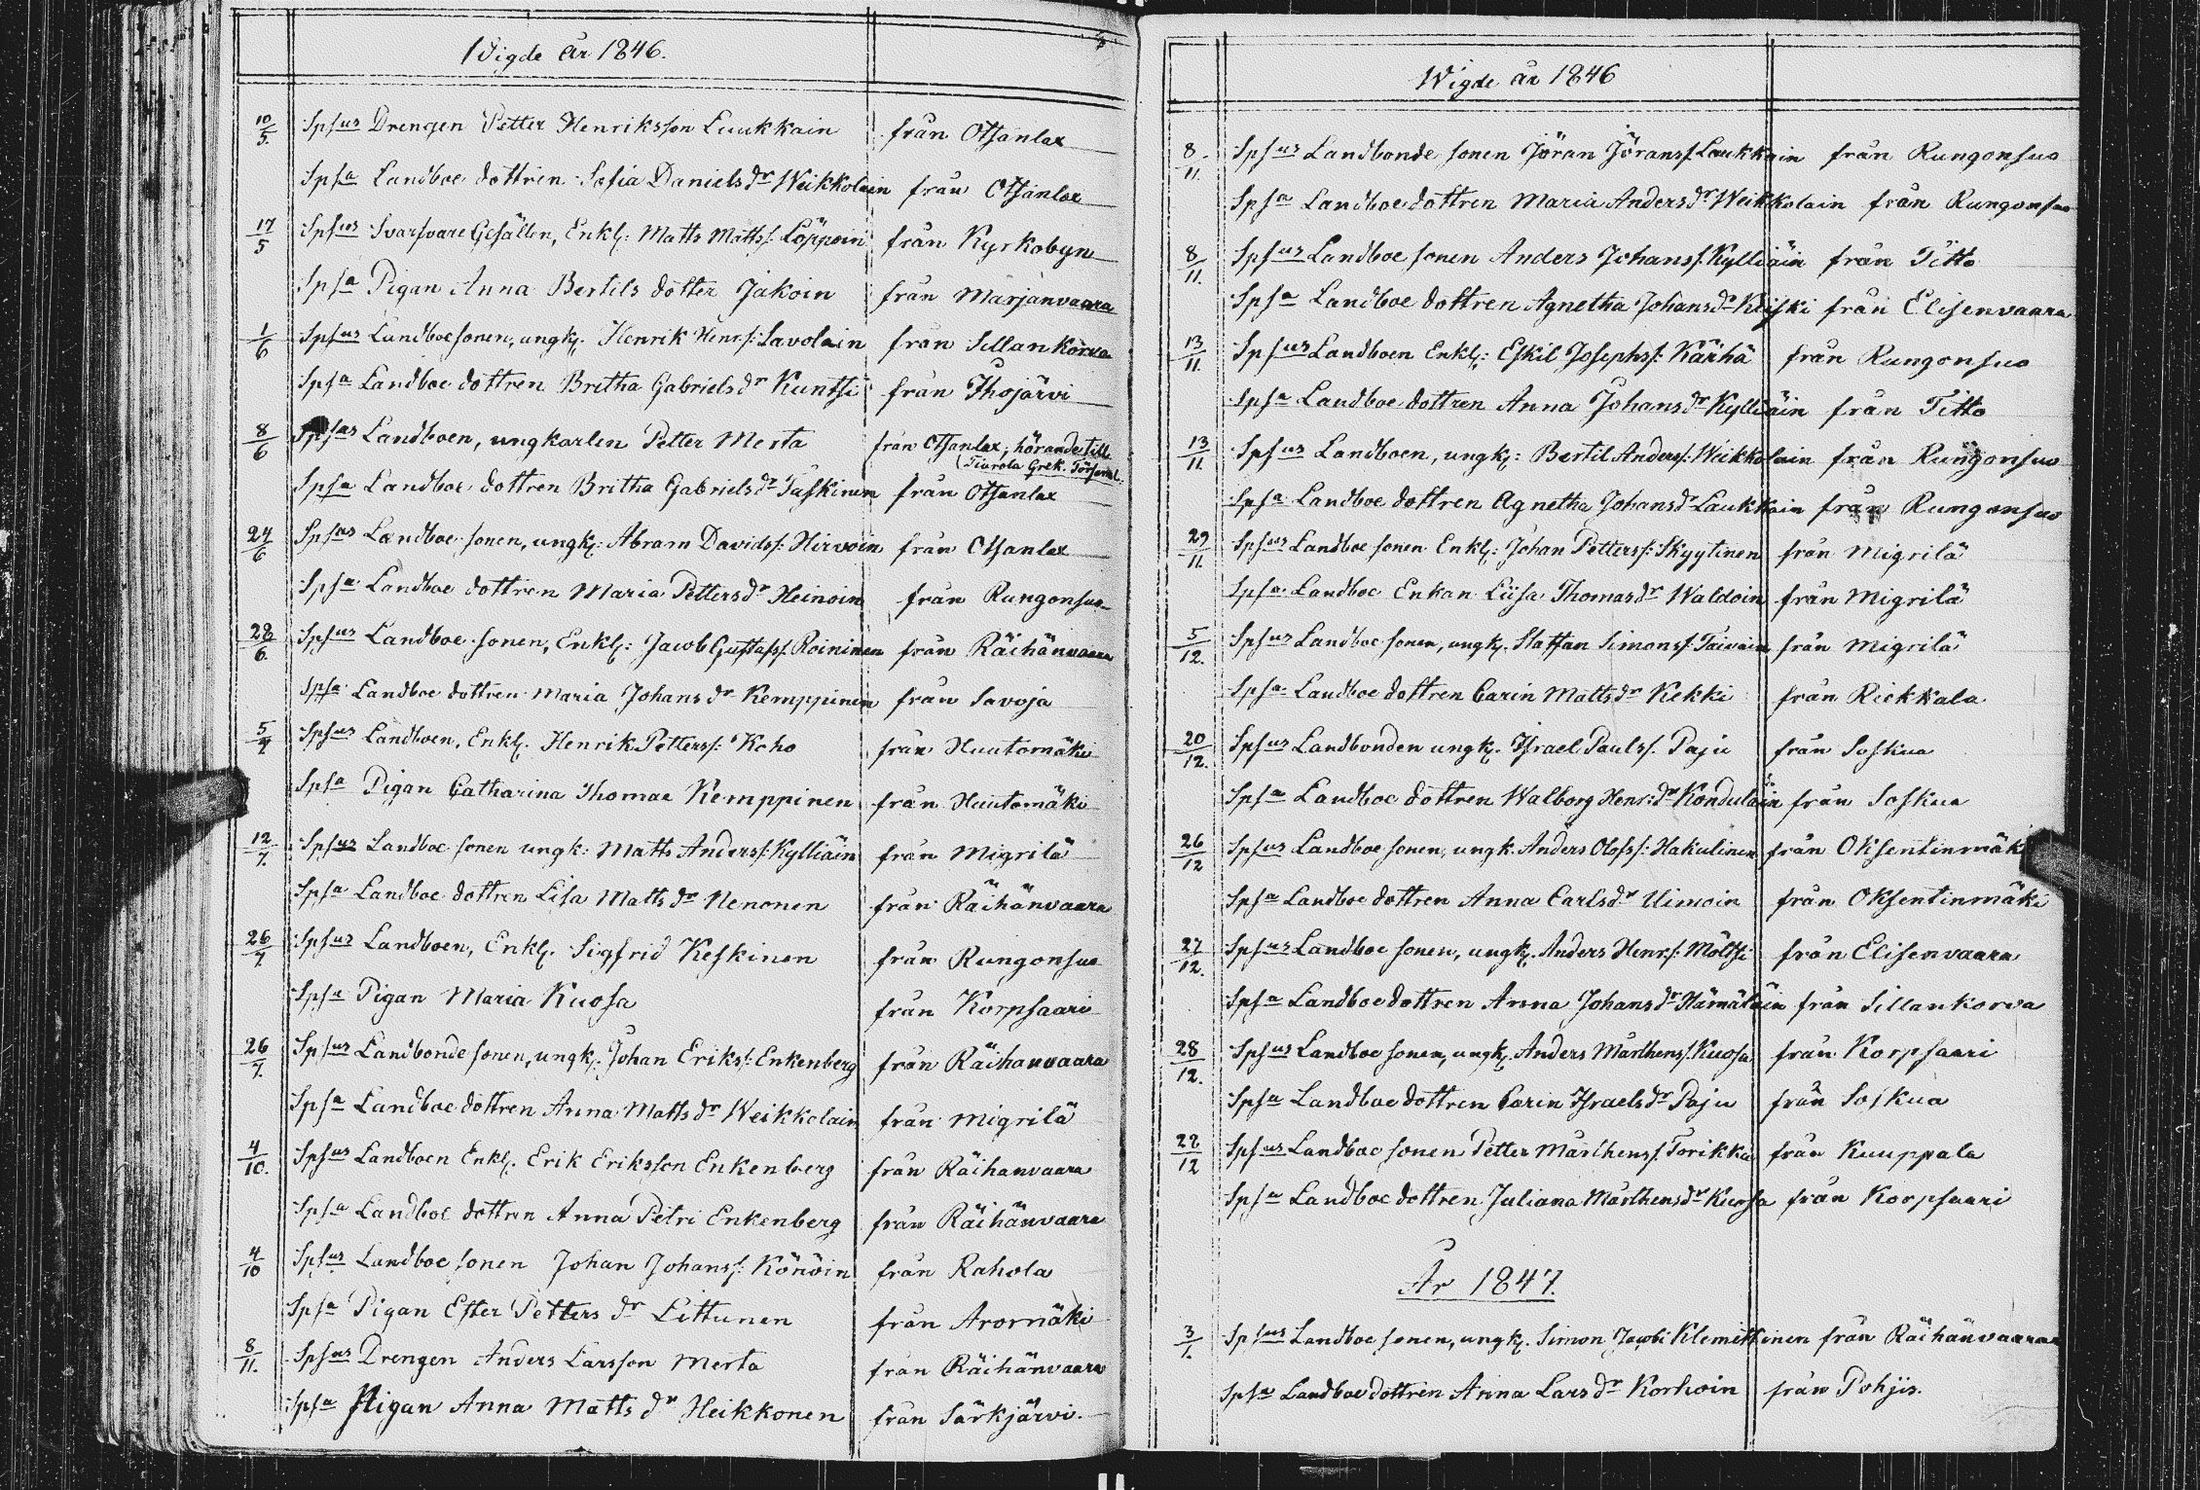 Vigde år 1846.
10/5. Spsus Drengen Petter Henriksson Luukkain från Otsanlax
Spsa Landboe dottren Sofia Daniels dr Weikkolain från Otsanlax
17/5 Spsus Svarfvare Gesällen, Enkl: Matts Matss: Löppöin från Kyrkobyn
Spsa Pigan Anna Bertils dotter Jakoin från Marjanvaara
1/6 Spsus Landboe sonen, ungk. Henrik Henrs: Savolain från Sillankorva
Spsa Landboe dottren Britha Gabriels dr Kuntsi från Ihojärvi
8/6 Spsus Landboen, ungkarlen Petter Merta från Otsanlax, hörande till
(Tiurola Grek. Församl.
Spsa Landboe dottren Britha Gabriels dr Taskinen från Otsanlax
24/6 Spsus Landboe sonen, ungk: Abram Davidss: Hirvoin från Otsanlax
Spsa Landboe dottren Maria Petters dr Heinoin från Rungonsuo
28/6. Spsus Landboe sonen, Enkl: Jacob Gustafss: Roininen från Räihänvaara
Spsa Landboe dottren Maria Johans dr Kemppinen från Savoja
5/7 Spsus Landboen, Enkl. Henrik Petterss: Koho från Huutomäki
Spsa Pigan Catharina Thomae Kemppinen från Huutomäki
12/7. Spsus Landboe sonen ungk: Matts Anderss: Kylliäin från Migrilä
Spsa Landboe dottren Lisa Matts dr Nenonen från Räihänvaara
26/7 Spsus Landboen, Enkl. Sigfrid Keskinen från Rungonsuo
Spsa Pigan Maria Kuosa från Korpsaari
26/7. Spsus Landbonde sonen, ungk: Johan Eriks: Enkenberg från Räihänvaara
Spsa Landboe dottren Anna Matts dr Weikkolain från Migrilä
4/10. Spsus Landboen Enkl. Erik Eriksson Enkenberg från Räihänvaara
Spsa Landboe dottren Anna Petri Enkenberg från Räihänvaara
4/10 Spsus Landboe sonen Johan Johanss: Könöin från Rahola
Spsa Pigan Ester Petters dr Littunen från Aromäki
8/11. Spsus Drengen Anders Larsson Merta från Räihänvaara
Spsa Pigan Anna Matts dr Heikkonen från Särkjärvi.
Wigde år 1846
8/11. Spsus Landbonde sonen Jöran Jöranss: Laukkain från Rungonsuo
Spsa Landboe dottren Maria Anders dr Weikkolain från Rungonsuo
8/11. Spsus Landboe sonen Anders Johanss: Kylliäin från Titto
Spsa Landboe dottren Agnetha Johans dr Keiski från Elisenvaara
13/11. Spsus Landboen Enkl: Eskil Josephss: Kärhä från Rungonsuo
Spsa Landboe dottren Anna Johans dr Kylliäin från Titto
13/11. Spsus Landboen, ungk: Bertil Anderss: Weikkolain från Rungonsuo
Spsa Landboe dottren Agnetha Johans dr Laukkain från Rungonsuo
29/11. Spsus Landboe sonen Enkl: Johan Petterss: Skyytinen från Migrilä
Spsa Landboe Enkan Liisa Thomas dr Waldoin från Migrilä
5/12. Spsus Landboe sonen, ungk. Staffan Simonss: Taivain från Migrilä
Spsa Landboe dottren Carin Matts dr Kekki från Riekkala
20/12. Spsus Landbonden ungk. Israel Paulss. Paju från Soskua
Spsa Landboe dottren Walborg Henr: dr Kondulain från Soskua
26/12 Spsus Landboe sonen, ungk. Anders Olofss: Hakulinen från Oksentinmäki
Spsa Landboe dottren Anna Carls dr Uimoin från Oksentinmäki
27/12. Spsus Landboe sonen, ungk. Anders Henrs: Möltsi från Elisenvaara
Spsa Landboe dottren Anna Johans dr Hämäläin från Sillankorva
28/12. Spsus Landboe sonen, ungk. Anders Mårthenss. Kuosa från Korpsaari
Spsa Landboe dottren Carin Israels dr Paju från Soskua
28/12 Spsus Landboe sonen Petter Mårthenss. Torikka från Kuuppala
Spsa Landboe dottren Juliana Mårthens dr Kuosa från Korpsaari
År 1847.
3/1. Spsus Landboe sonen, ungk. Simon Jacobi Klemittinen från Räihänvaara
Spsa Landboe dottren Anna Lars dr Korhoin från Pohjis.